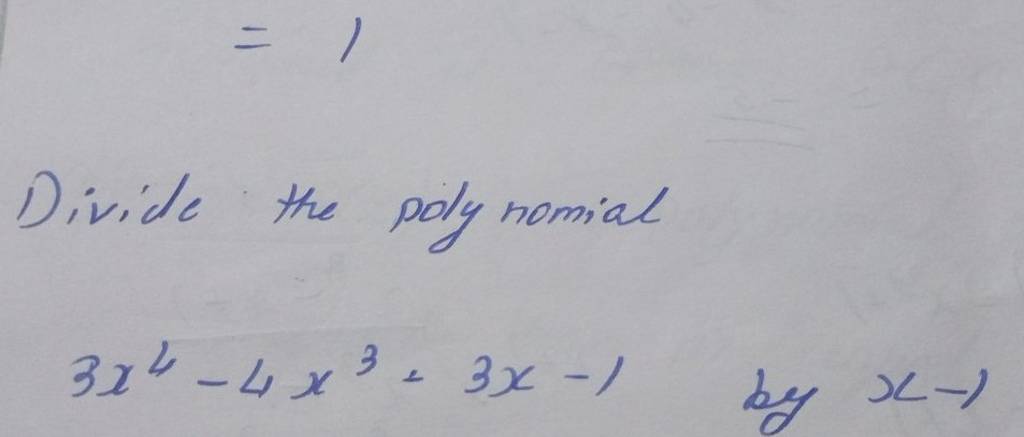 = 1
Divide the polynomial
3x⁴ - 4x³ - 3x - 1 by x-1